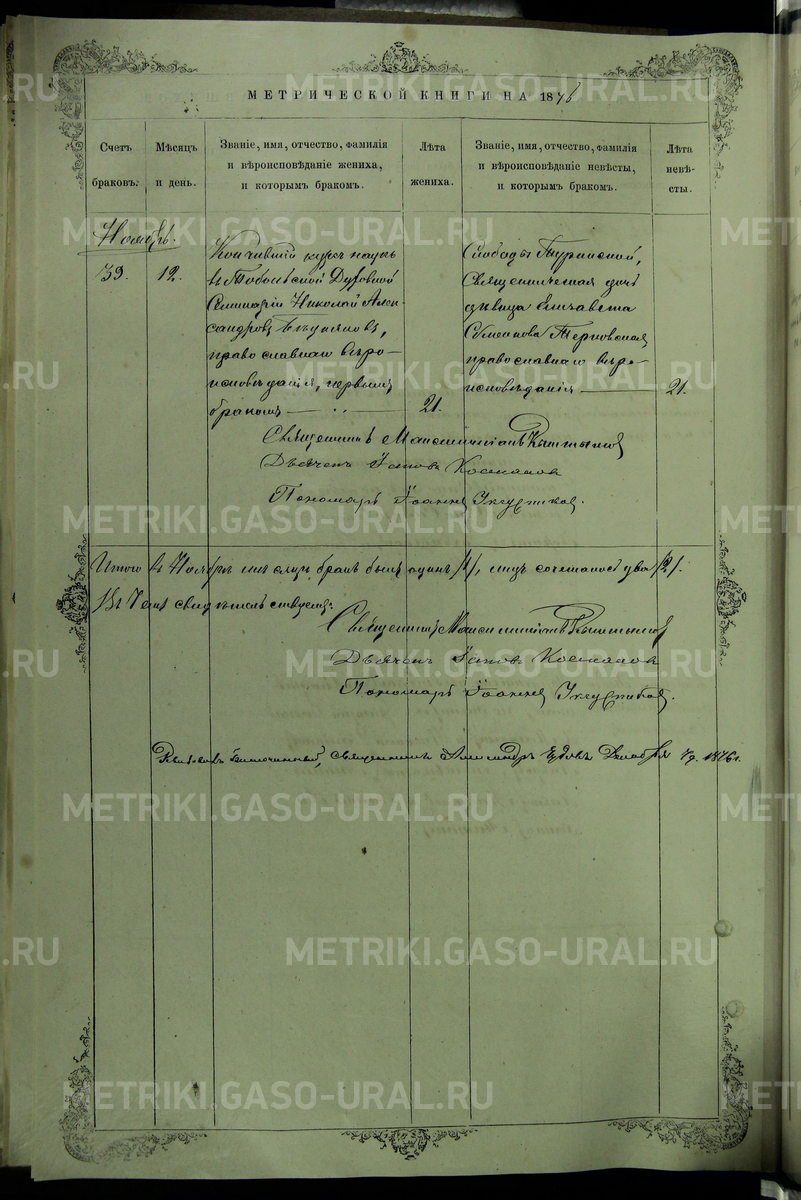 МЕТРИЧЕСКОЙ КНИГИ НА 1876
Счетъ браковъ.
Мѣсяцъ и день.
Званіе, имя, отчество, фамилія
и вѣроисповѣданіе жениха,
и которымъ бракомъ.
Лѣта жениха.
Званіе, имя, отчество, фамилія
и вѣроисповѣданіе невѣсты,
и которымъ бракомъ.
Лѣта невѣ-
сты.
Ноябрь.
39.
12.
Кончившій курсъ наукъ
въ Тобольской Духовной
Семинаріи Николай Алек-
сандровъ
православнаго вѣро-
исповѣданія, первымъ
бракомъ
21.
Слободы Туринской,
Священническая дочь
дѣвица Елизавета
Симеонова Терновская
православнаго вѣро-
исповѣданія
21.
Священникъ
Дьяченъ Іаковъ Космаковъ
Пономарь Іоаннъ
Итого въ Ноябрѣ мѣс. случ. бракъ былъ одинъ /1/, лицъ сочталось два /2/.
Въ чемъ свидѣтельствуемъ:
Священникъ
Дьяченъ Іаковъ Космаковъ
Пономарь Іоаннъ
Благочинный, Священникъ Александръ Декабря 1876 г.
METRIKI.GASO-URAL.RU